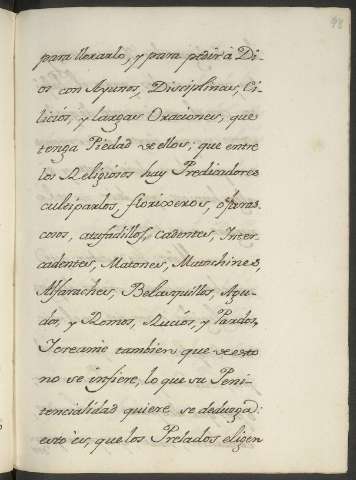 98
para llorarlo, y para pedir à Di-
os con Ayunos, Disciplinas, Ci-
licios, y largas Oraciones, que
tenga Piedad de ellos; que entre
los Religiosos hay Predicadores
culsiparlos, florideros, ofaras-
cosos, atufadillos, Cadentes, Inter-
cadentes, Matones, Matachines,
Alfaraches, Belasquillos, Agu-
dos, y Romos, Rucios, y Pardos,
Icreame tambien que de esto
no se infiere, lo que su Peni-
tencialidad quiere se deduzga:
esto es, que los Prelados eligen